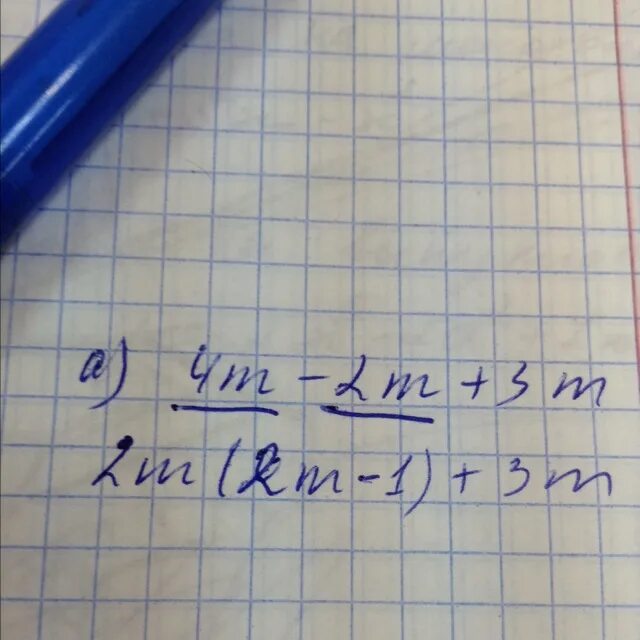 а) 4m - 2m + 3m
2m (2m - 1) + 3m